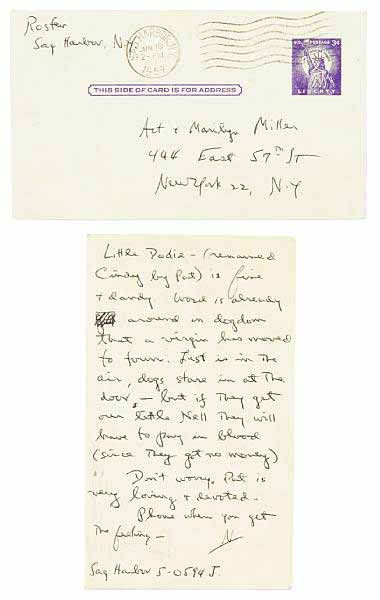 Rosten
Sag Harbor, N.Y.
SAG HARBOR, N.Y.
JUN 10
2 - PM
1959
U.S. POSTAGE 3¢
LIBERTY
THIS SIDE OF CARD IS FOR ADDRESS
Art + Marilyn Miller
444 East 57th St
New York 22, N.Y
Little Dodie - (renamed
Cindy by Pat) is fine
+ dandy. Word is already
around in dogdom
that a virgin has moved
to town. Lust is in the
air, dogs stare in at the
door, - but if they get
our little Nell they will
have to pay in blood
(since they got no money)
Don't worry. Pat is
very loving + devoted -
Phone when you get
the feeling -
N
Sag Harbor 5-0594 J.